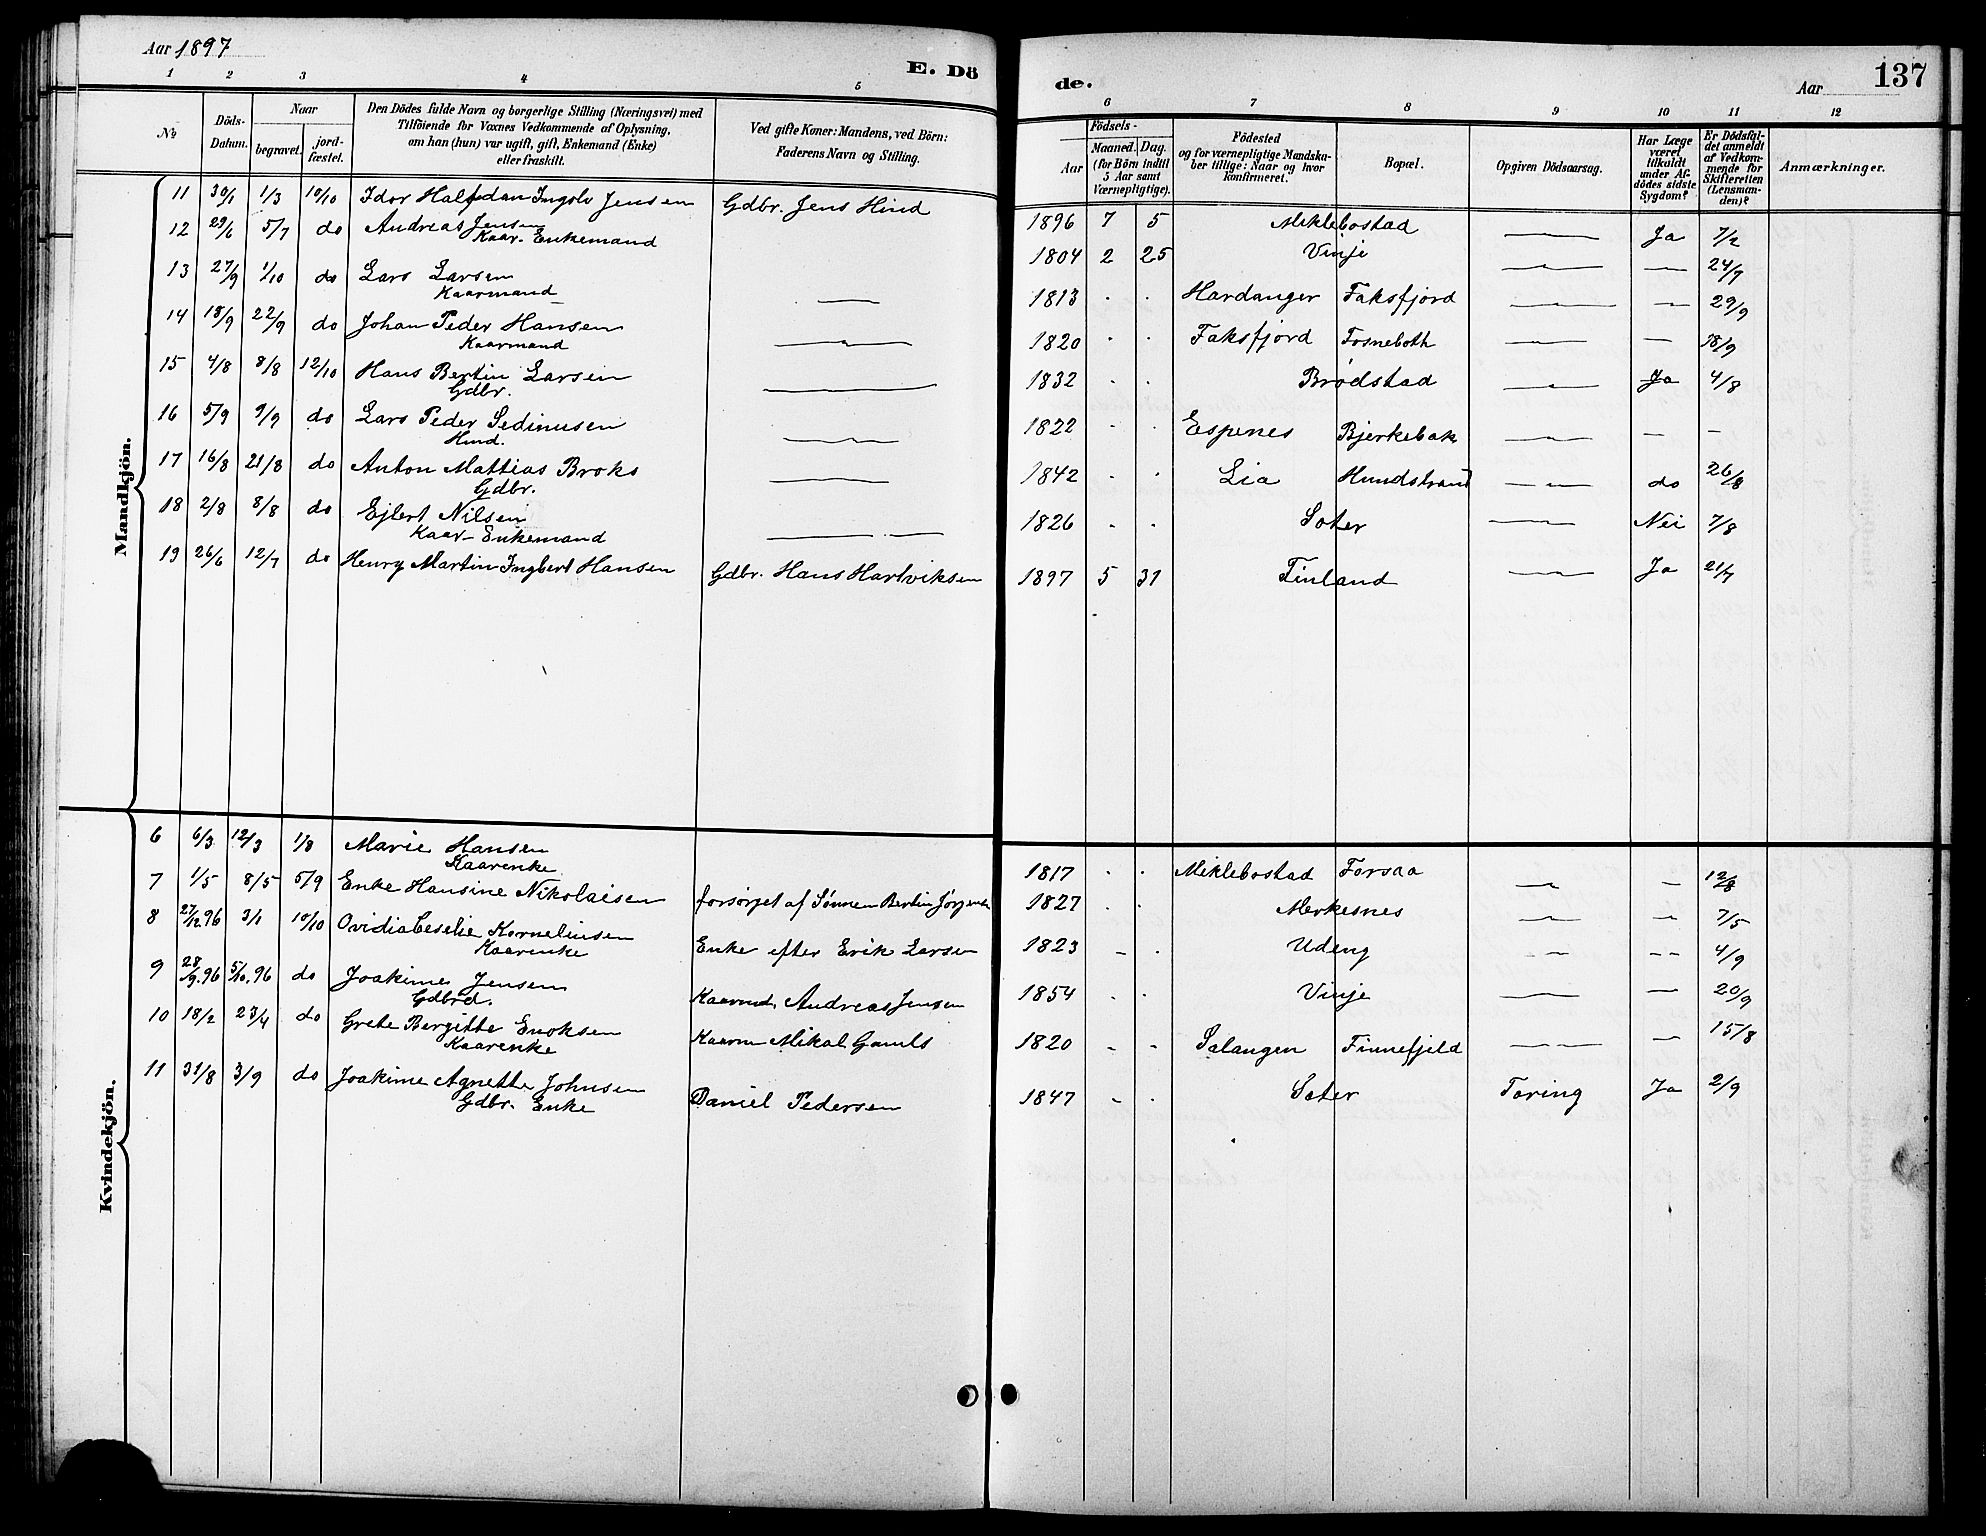 Aar 1897
E. Dö
de.
Aar
137
1 2 3 4 5
6 7 8 9 10 11 12
No
Döds-Datum.
Naar
begravet.
jord-fæstet.
Den Dödes fulde Navn og borgerlige Stilling (Næringsvei) med
Tilföiende for Voxnes Vedkommende af Oplysning,
om han (hun) var ugift, gift, Enkemand (Enke)
eller fraskilt.
Ved gifte Koner: Mandens, ved Börn:
Faderens Navn og Stilling.
Födsels-
Aar
Maaned. Dag.
(for Börn indtil
5 Aar samt
Værnepligtige).
Födested
og for værnepligtige Mandska-
ber tillige: Naar og hvor
konfirmeret.
Bopæl.
Opgiven Dödsaarsag.
Har Læge
været
tilkaldt
under Af-
dödes sidste
Sygdom?
Er Dödsfal-
det anmeldt
af Vedkom-
mende for
Skifteretten
(Lensman-
den)?
Anmærkninger.
Mandkjön.
11 30/1 1/3 10/10 Idor Halfdan Ingolv Jensen Gdbr. Jens Hind 1896 7 5 Meklebostad — Ja 7/2
12 29/6 5/7 do Andreas Jensen
Kaar- Enkemand 1804 2 25 Vinje — — 24/7
13 27/9 1/10 do Lars Larsen
Kaarmand — 1813 . . Hardanger Faksfjord — — 29/9
14 18/9 22/9 do Johan Peder Hansen
Kaarmand — 1820 . . Faksfjord Fosneboth — — 18/9
15 4/8 8/8 12/10 Hans Bertin Larsen
Gdbr. — 1832 . . Brødstad — Ja 4/8
16 5/9 9/9 do Lars Peder Sedinusen
Hmd. — 1822 . . Espenes Bjerkebak — — —
17 16/8 21/8 do Anton Mattias Broks
Gdbr. — 1842 . . Lia Hundstrand — do 26/8
18 2/8 8/8 do Ejlert Nilsen
Kaar- Enkemand — 1826 . . Soter — Nei 7/8
19 26/6 12/7 do Henry Martin Ingbert Hansen Gdbr. Hans Hartviksen 1897 5 31 Finland — Ja 21/7
Kvindekjön.
6 6/3 12/3 1/8 Marie Hansen
Kaarenke 1817 . . Meklebostad Forsaa — — 12/8
7 1/5 8/5 5/9 Enke Hansine Nikolaisen forsørget af Sønnen Bertin Jørgensen 1827 . . Merkesnes — — 7/5
8 27/12.96 3/1 10/10 Ovidia Ceselie Kornelinsen
Kaarenke Enke efter Erik Larsen 1823 - . Udeng — — 4/9
9 28/9.96 5/10.96 do Joakime Jensen
Gdbrd. Kaarmd. Andreas Jensen 1854 . . Vinje — — 20/9
10 18/2 23/4 do Grete Bergitte Enoksen
Kaarenke Kaarm Mikal Gamls 1820 - - Salangen Finnefjeld — — 15/8
11 31/8 3/9 do Joakime Agnette Johnsen
Gdbr. Enke Daniel Pedersen 1847 - . Soter Toring Ja 2/9